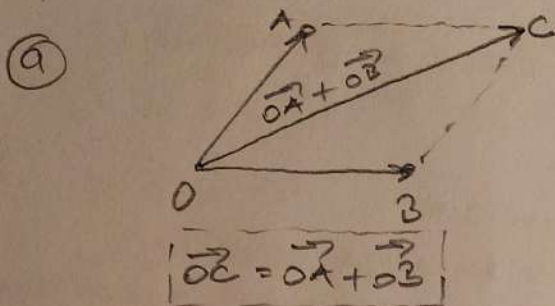 a
A C
OA + OB
O B
OC = OA + OB